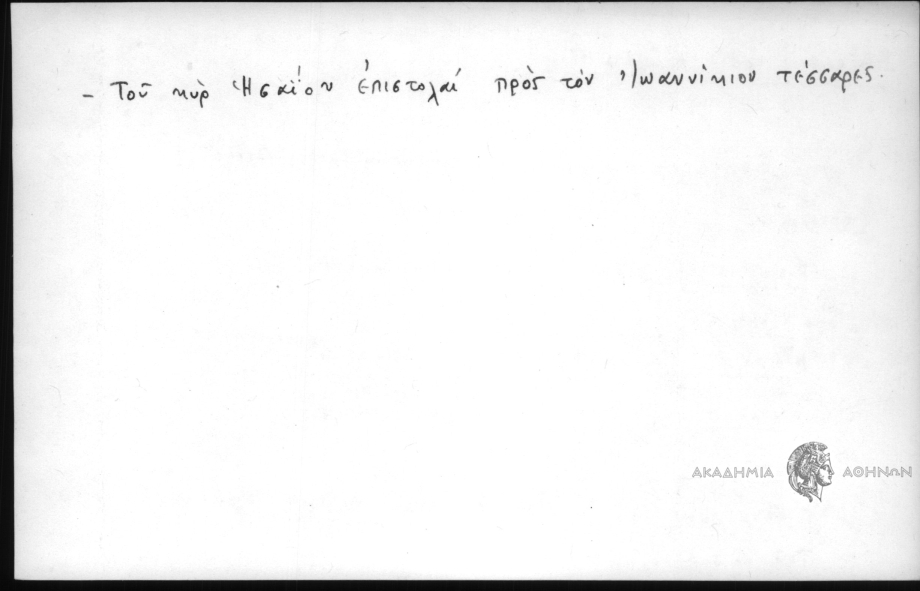 - Τοῦ κυρ Ἡσαΐου ἐπιστολαί πρὸς τόν Ἰωαννίκιον τέσσαρες.
ΑΚΑΔΗΜΙΑ ΑΘΗΝΩΝ